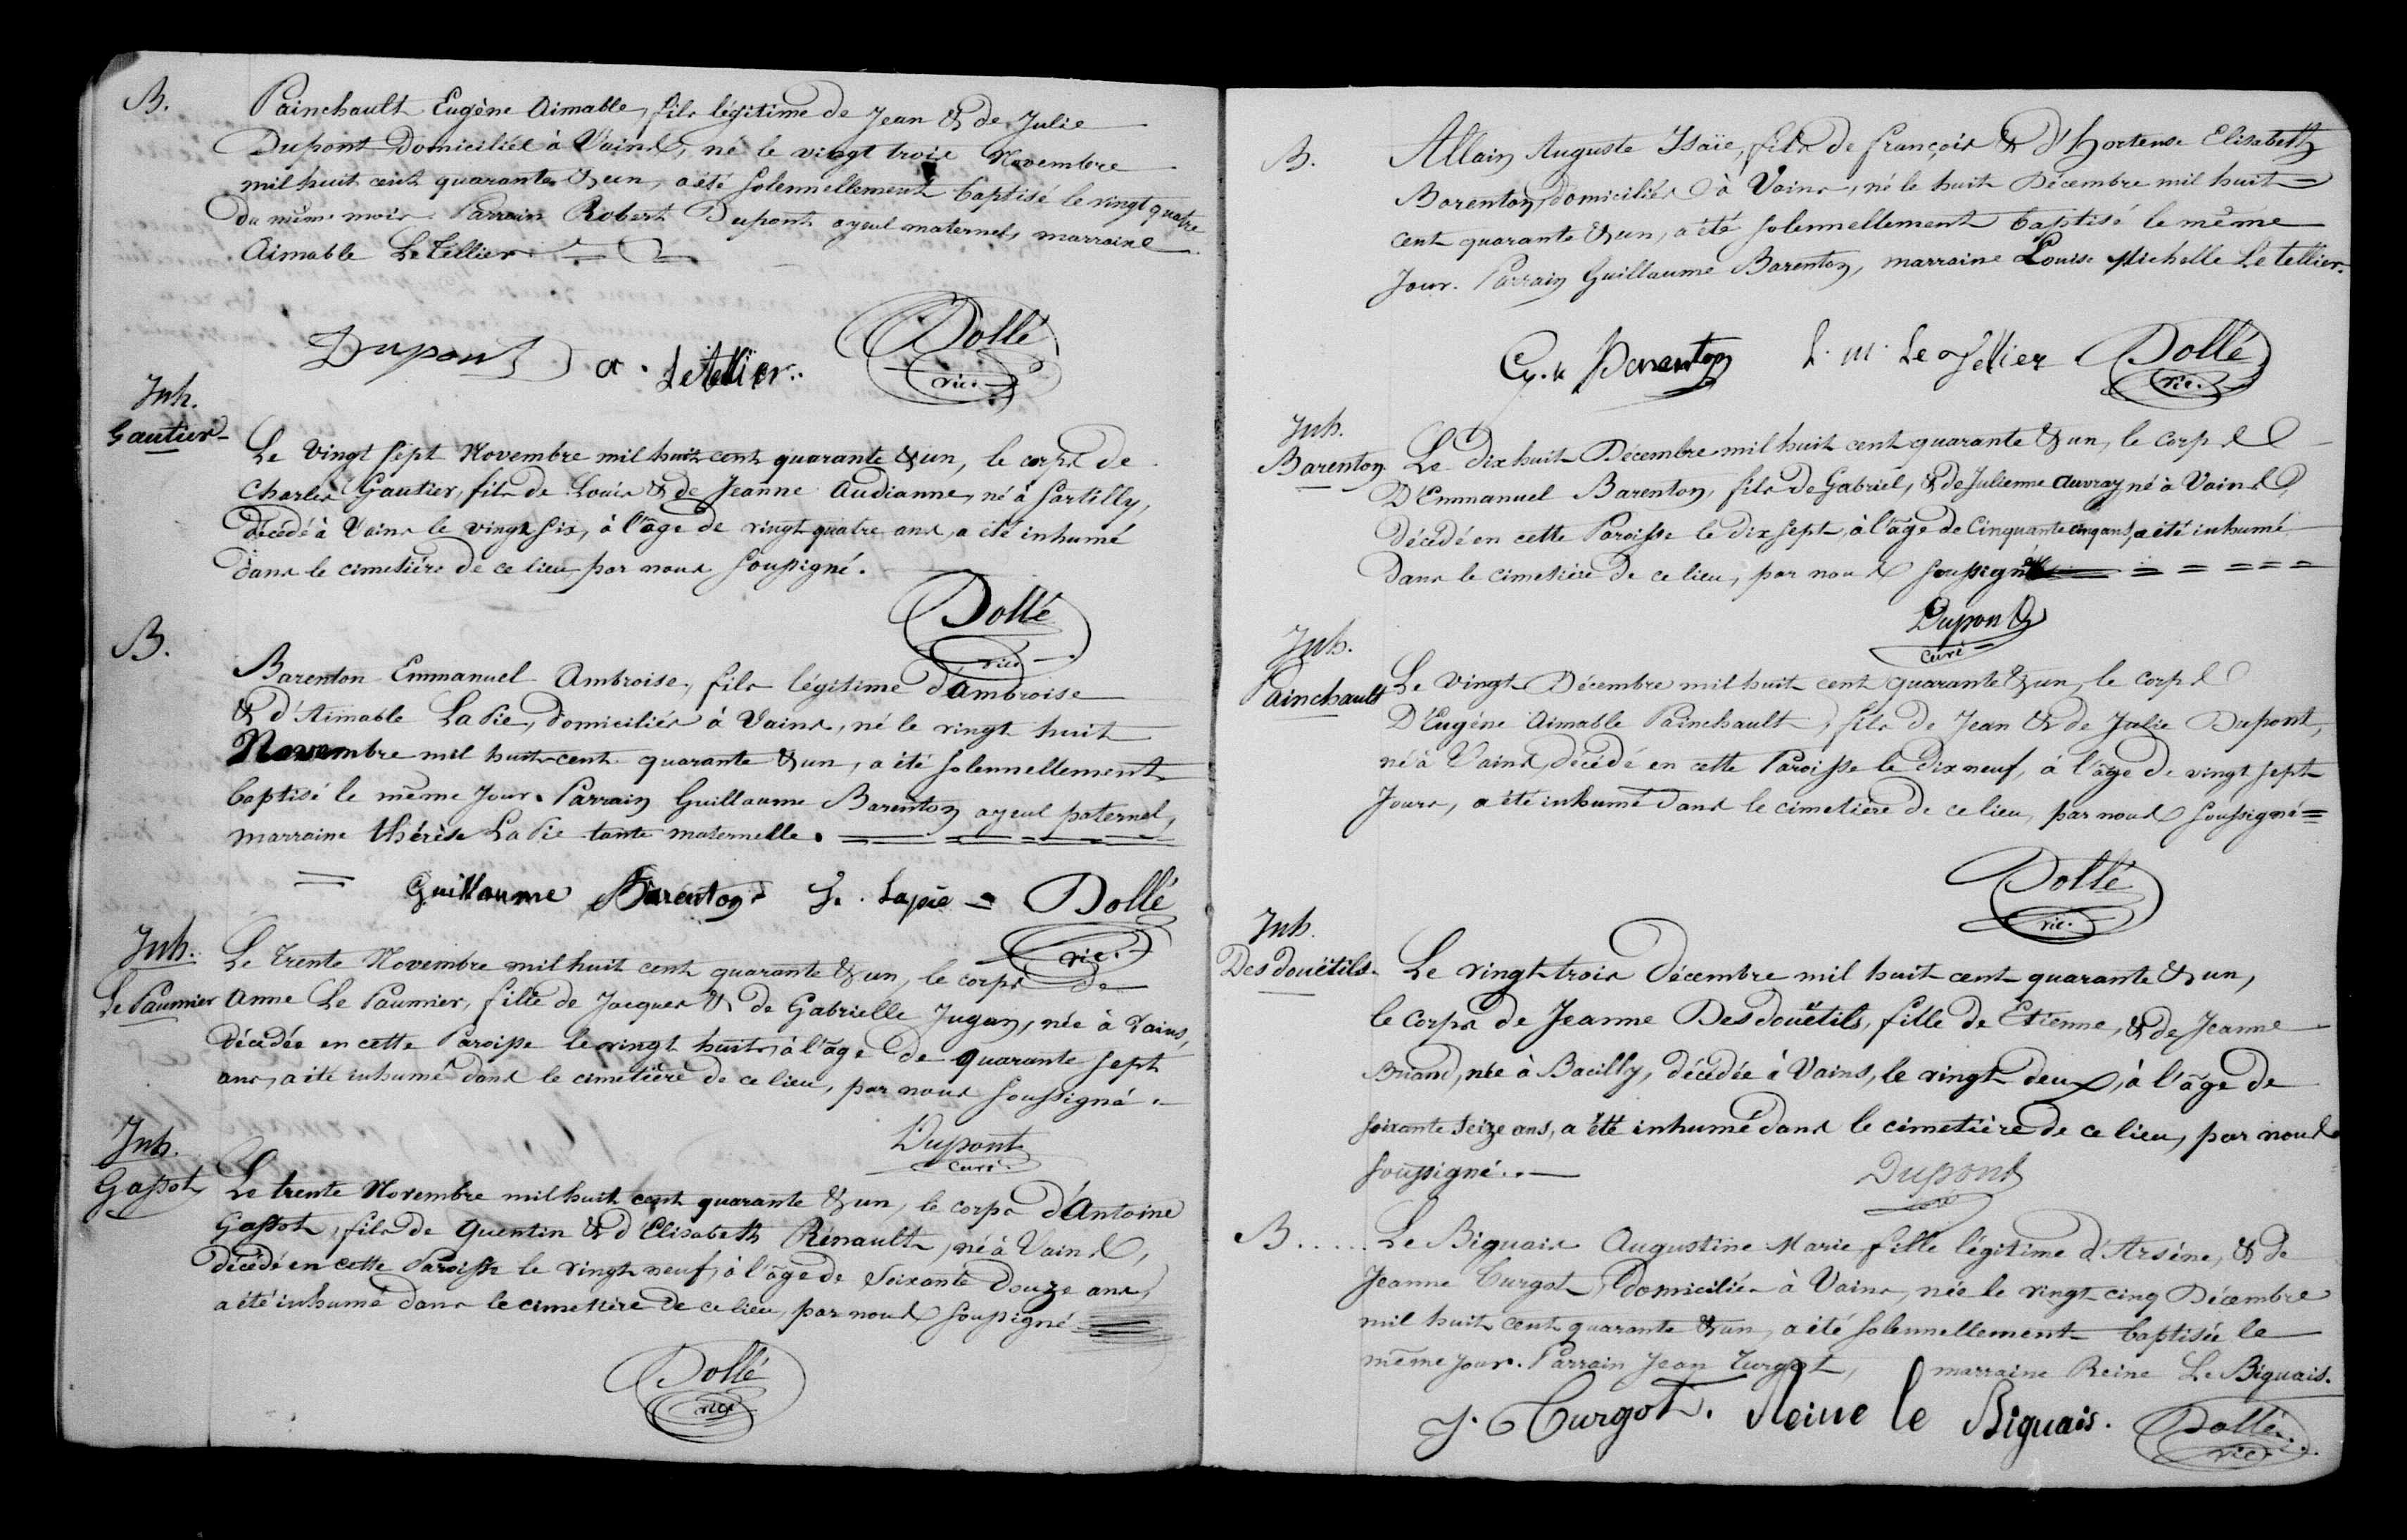 B.
Painchault Eugène Aimable, fils légitime de Jean & de Julie
Dupont domiciliés à Vains, né le vingt trois Novembre
mil huit cent quarante & un, a été solennellement baptisé le vingt quatre
du même mois. Parrain Robert Dupont ayeul maternel, marraine
Aimable Le Tellier.
Dupont a. Letellier. Dollé
vic.
Inh.
Gautier
Le vingt sept Novembre mil huit cent quarante & un, le corps de
Charles Gautier, fils de Louis & de Jeanne Audianne, né à Sartilly,
décédé à Vains le vingt six, à l'âge de vingt quatre ans, a été inhumé
dans le cimetière de ce lieu par nous soussigné.
Dollé
vic.
B.
Barenton Emmanuel Ambroise, fils légitime d'Ambroise
& d'Aimable La Pie, domiciliés à Vains, né le vingt huit
Novembre mil huit cent quarante & un, a été solennellement
baptisé le même jour. Parrain Guillaume Barenton ayeul paternel,
marraine thérèse La Pie tante maternelle.
Guillaume Barenton Lapie Dollé
vic.
Inh.
Le Paumier
Le trente Novembre mil huit cent quarante & un, le corps de
Anne Le Paumier, fille de Jacques & de Gabrielle Jugan, née à Vains,
décédée en cette Paroisse le vingt huit, à l'âge de quarante sept
ans, a été inhumé dans le cimetière de ce lieu, par nous soussigné.
Dupont
curé
Inh.
Gassot
Le trente Novembre mil huit cent quarante & un, le corps d'Antoine
Gassot, fils de Quentin & d'Elisabeth Rénault, né à Vains,
décédé en cette Paroisse le vingt neuf, à l'âge de Soixante Douze ans,
a été inhumé dans le cimetière de ce lieu, par nous soussigné
Dollé
vic.
B.
Allain Auguste Isaïe, fils de françois & d'hortense Elisabeth
Barenton, domiciliés à Vains, né le huit Décembre mil huit
cent quarante & un, a été solennellement baptisé le même
jour. Parrain Guillaume Barenton, marraine Louise Michelle Le tellier.
Barenton L. M. Le Tellier Dollé
vic.
Inh.
Barenton
Le dix huit Décembre mil huit cent quarante & un, le corps
D'Emmanuel Barenton, fils de Gabriel, & de Julienne Auvray né à Vains,
décédé en cette Paroisse le dix sept, à l'âge de Cinquante cinq ans, a été inhumé
dans le cimetière de ce lieu, par nous soussigné
Dupont
Curé
Inh.
Painchault
Le vingt Décembre mil huit cent quarante & un, le corps
D'Eugène Aimable Painchault, fils de Jean & de Julie Dupont,
né à Vains, décédé en cette Paroisse le dix neuf, à l'âge de vingt sept
jours, a été inhumé dans le cimetière de ce lieu, par nous soussigné
Dollé
vic.
Inh.
Desdouëtils
Le vingt trois Décembre mil huit cent quarante & un,
le corps de Jeanne Desdouëtils, fille de Etienne, & de Jeanne
née à Bacilly, décédée à Vains, le vingt deux, à l'âge de
soixante seize ans, a été inhumé dans le cimetière de ce lieu, par nous
soussigné.
Dupont
B.....
Le Biguais Augustine Marie, fille légitime d'Arsène, & de
Jeanne Turgot, domiciliés à Vains, née le vingt cinq Décembre
mil huit cent quarante & un, a été solennellement baptisée le
même jour. Parrain Jean Turgot, marraine Reine Le Biguais.
J. Turgot. Reine le Biguais. Dollé
vic.